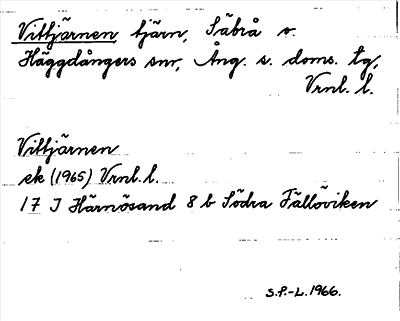 Vittjärnen, tjärn, Säbrå o.
Häggdångers snr, Ång. s. doms. tg,
Vrnl. l.
Vittjärnen
ek (1965) Vrnl. l.
17 I Härnösand 8 b Södra Fällöviken
S.P.-L. 1966.